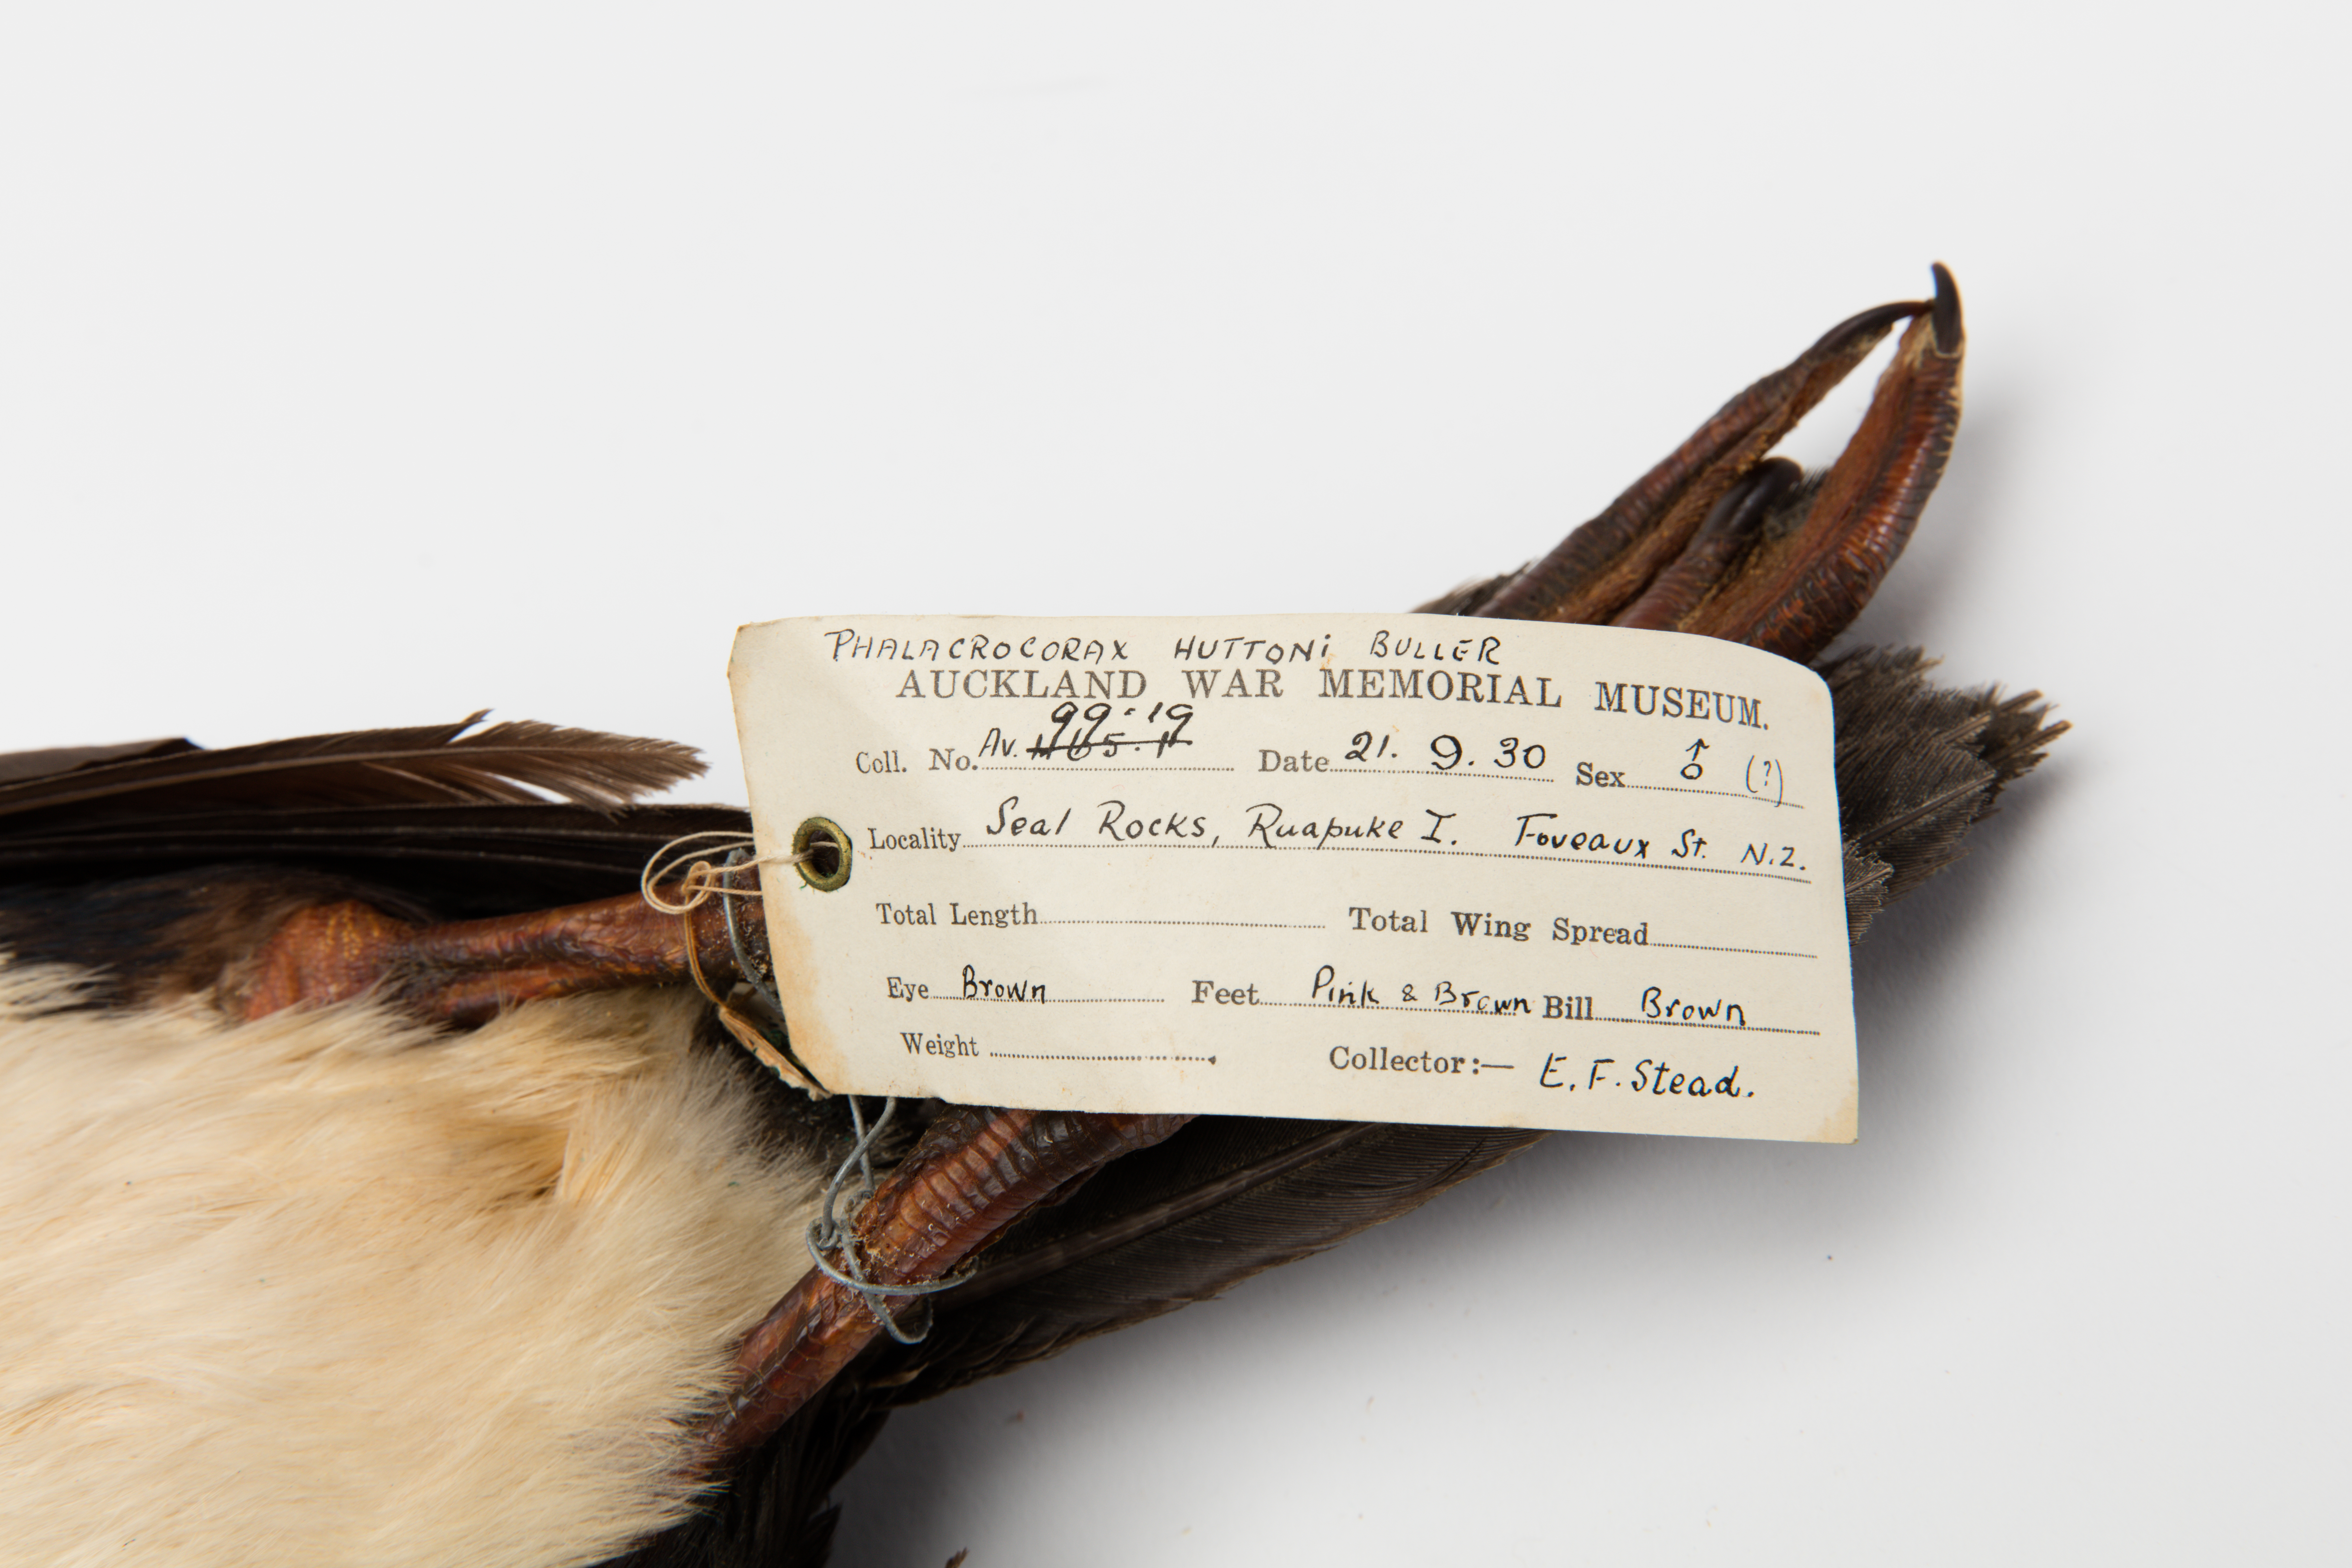 PHALACROCORAX HUTTONI BULLER
AUCKLAND WAR MEMORIAL MUSEUM.
99.19
Coll. No. Av. Date 21. 9. 30 Sex ♂ (?)
Locality Seal Rocks, Ruapuke I. Foveaux St. N.Z.
Total Length Total Wing Spread
Eye Brown Feet Pink & Brown Bill Brown
Weight Collector:— E. F. Stead.